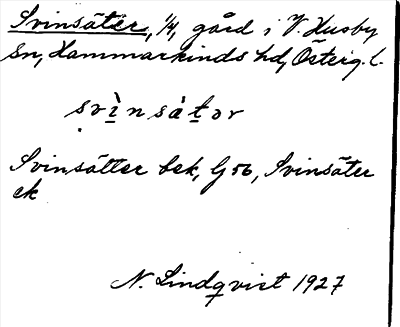 Svinsäter, 1/4, gård i V. Husby
sn, Hammarkinds hd, Österg. l.
svìnsàtər
Svinsätter bek, G 56, Svinsäter
ek
N. Lindqvist 1927